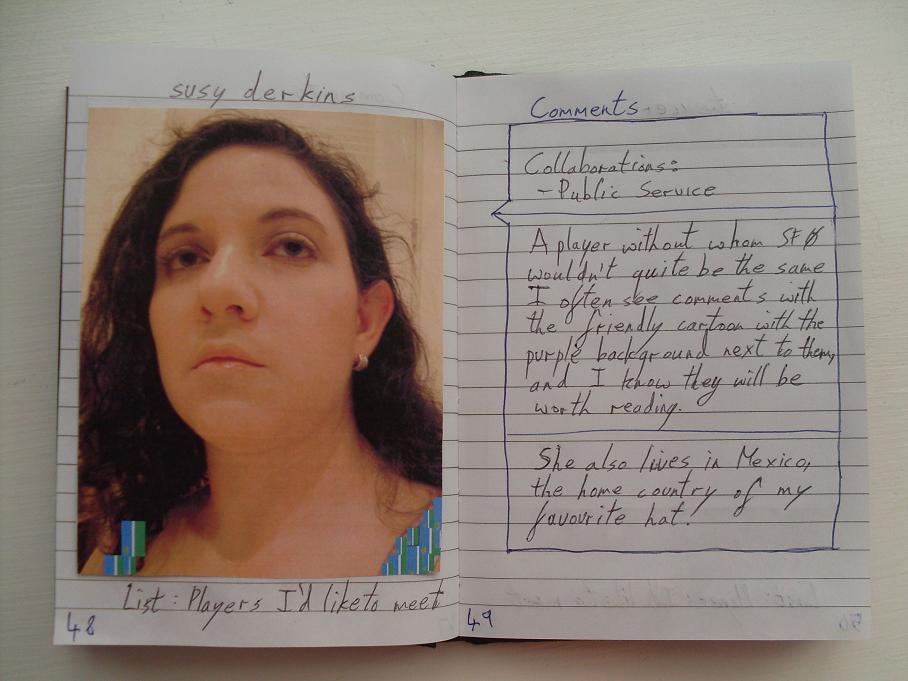 susy derkins
List: Players I'd like to meet
48
Comments
Collaborations:
- Public Service
A player without whom SFØ
wouldn't quite be the same
I often see comments with
the friendly cartoon with the
purple background next to them,
and I know they will be
worth reading.
She also lives in Mexico,
the home country of my
favourite hat.
49